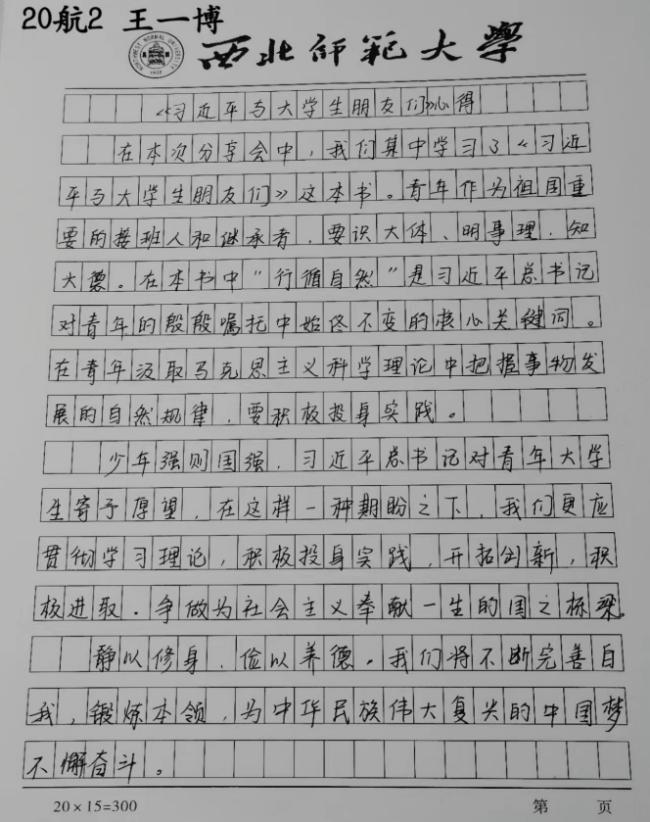 20航2 王一博
NORTHWEST NORMAL UNIVERSITY
1902
西北师范大學
《习近平与大学生朋友们》心得
在本次分享会中，我们集中学习了《习近
平与大学生朋友们》这本书。青年作为祖国重
要的接班人和继承者，要识大体、明事理、知
大德。在本书中"行循自然"是习近平总书记
对青年的殷殷嘱托中始终不变的核心关键词。
在青年汲取马克思主义科学理论中把握事物发
展的自然规律，要积极投身实践。
少年强则国强，习近平总书记对青年大学
生寄予厚望，在这样一种期盼之下，我们更应
贯彻学习理论，积极投身实践，开拓创新，积
极进取，争做为社会主义奉献一生的国之栋梁。
静以修身，俭以养德。我们将不断完善自
我，锻炼本领，为中华民族伟大复兴的中国梦
不懈奋斗。
20×15=300 第 页